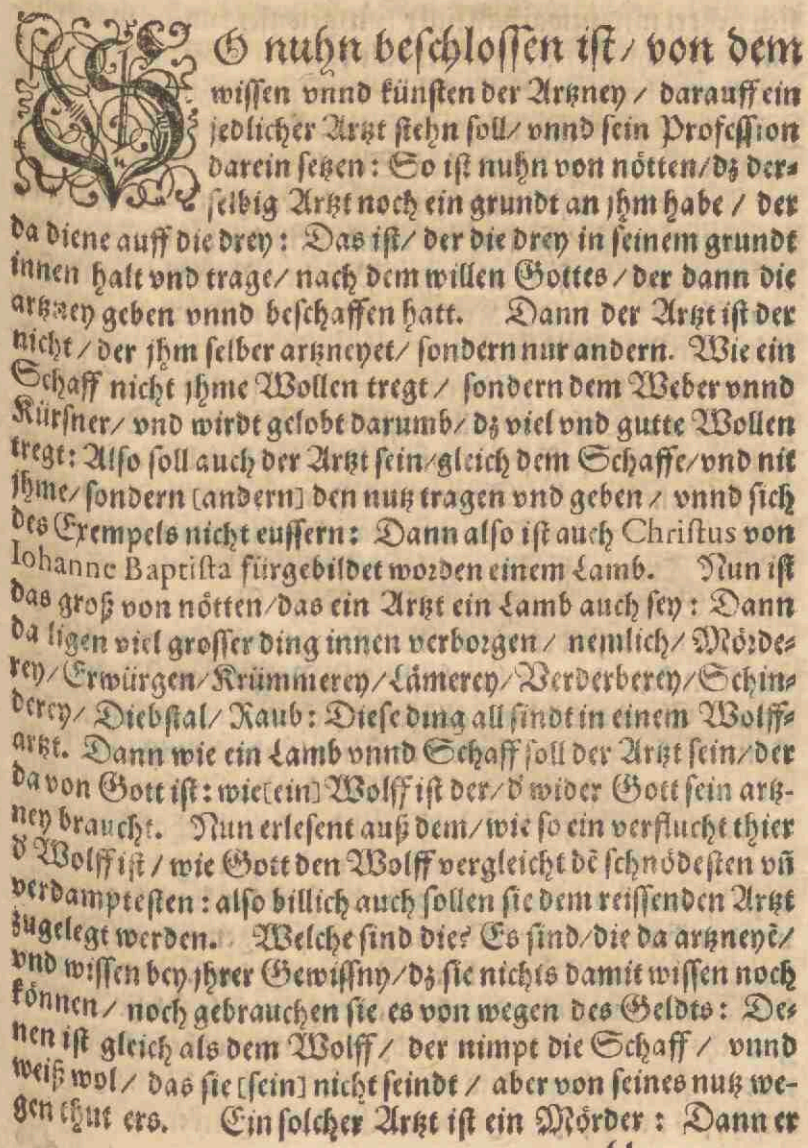 SO nuhn beschlossen ist/ von dem
wissen vnnd künsten der Artzney / darauff ein
jedlicher Artzt stehn soll/ vnnd sein Profession
darein setzen: So ist nuhn von nötten/dz der-
selbig Artzt noch ein grundt an jhm habe / der
da diene auff die drey: Das ist/ der die drey in seinem grundt
innen halt vnd trage/ nach dem willen Gottes / der dann die
artzney geben vnnd beschaffen hatt. Dann der Artzt ist der
nicht / der jhm selber artzneyet/ sondern nur andern. Wie ein
Schaff nicht jhme Wollen tregt / sondern dem Weber vnnd
Kürsner/ vnd wirdt gelobt darumb/ dz viel vnd gutte Wollen
tregt: Also soll auch der Artzt sein/gleich dem Schaffe/vnd nit
jhme/ sondern [andern] den nutz tragen vnd geben / vnnd sich
des Exempels nicht eussern: Dann also ist auch Christus von
Iohanne Baptista fürgebildet worden einem Lamb. Nun ist
das groß von nötten/das ein Artzt ein Lamb auch sey: Dann
da ligen viel grosser ding innen verborgen / nemlich/ Mörde-
rey/Erwürgen/Krümmerey/Lämerey/Verderberey/Schin-
derey/ Diebstal/ Raub: Diese ding all sindt in einem Wolff-
artzt. Dann wie ein Lamb vnnd Schaff soll der Artzt sein/der
da von Gott ist: wie[ein] Wolff ist der/ d' wider Gott sein artz-
ney braucht. Nun erlesent auß dem/wie so ein verflucht thier
d' Wolff ist / wie Gott den Wolff vergleicht dē schnödesten vñ
verdamptesten: also billich auch sollen sie dem reissenden Artzt
zugelegt werden. Welche sind die? Es sind/die da artzneyē/
vnd wissen bey jhrer Gewissny/dz sie nichts damit wissen noch
können/ noch gebrauchen sie es von wegen des Geldts: De-
nen ist gleich als dem Wolff / der nimpt die Schaff / vnnd
weiß wol/ das sie [sein] nicht seindt / aber von seines nutz we-
gen thut ers. Ein solcher Artzt ist ein Mörder: Dann er